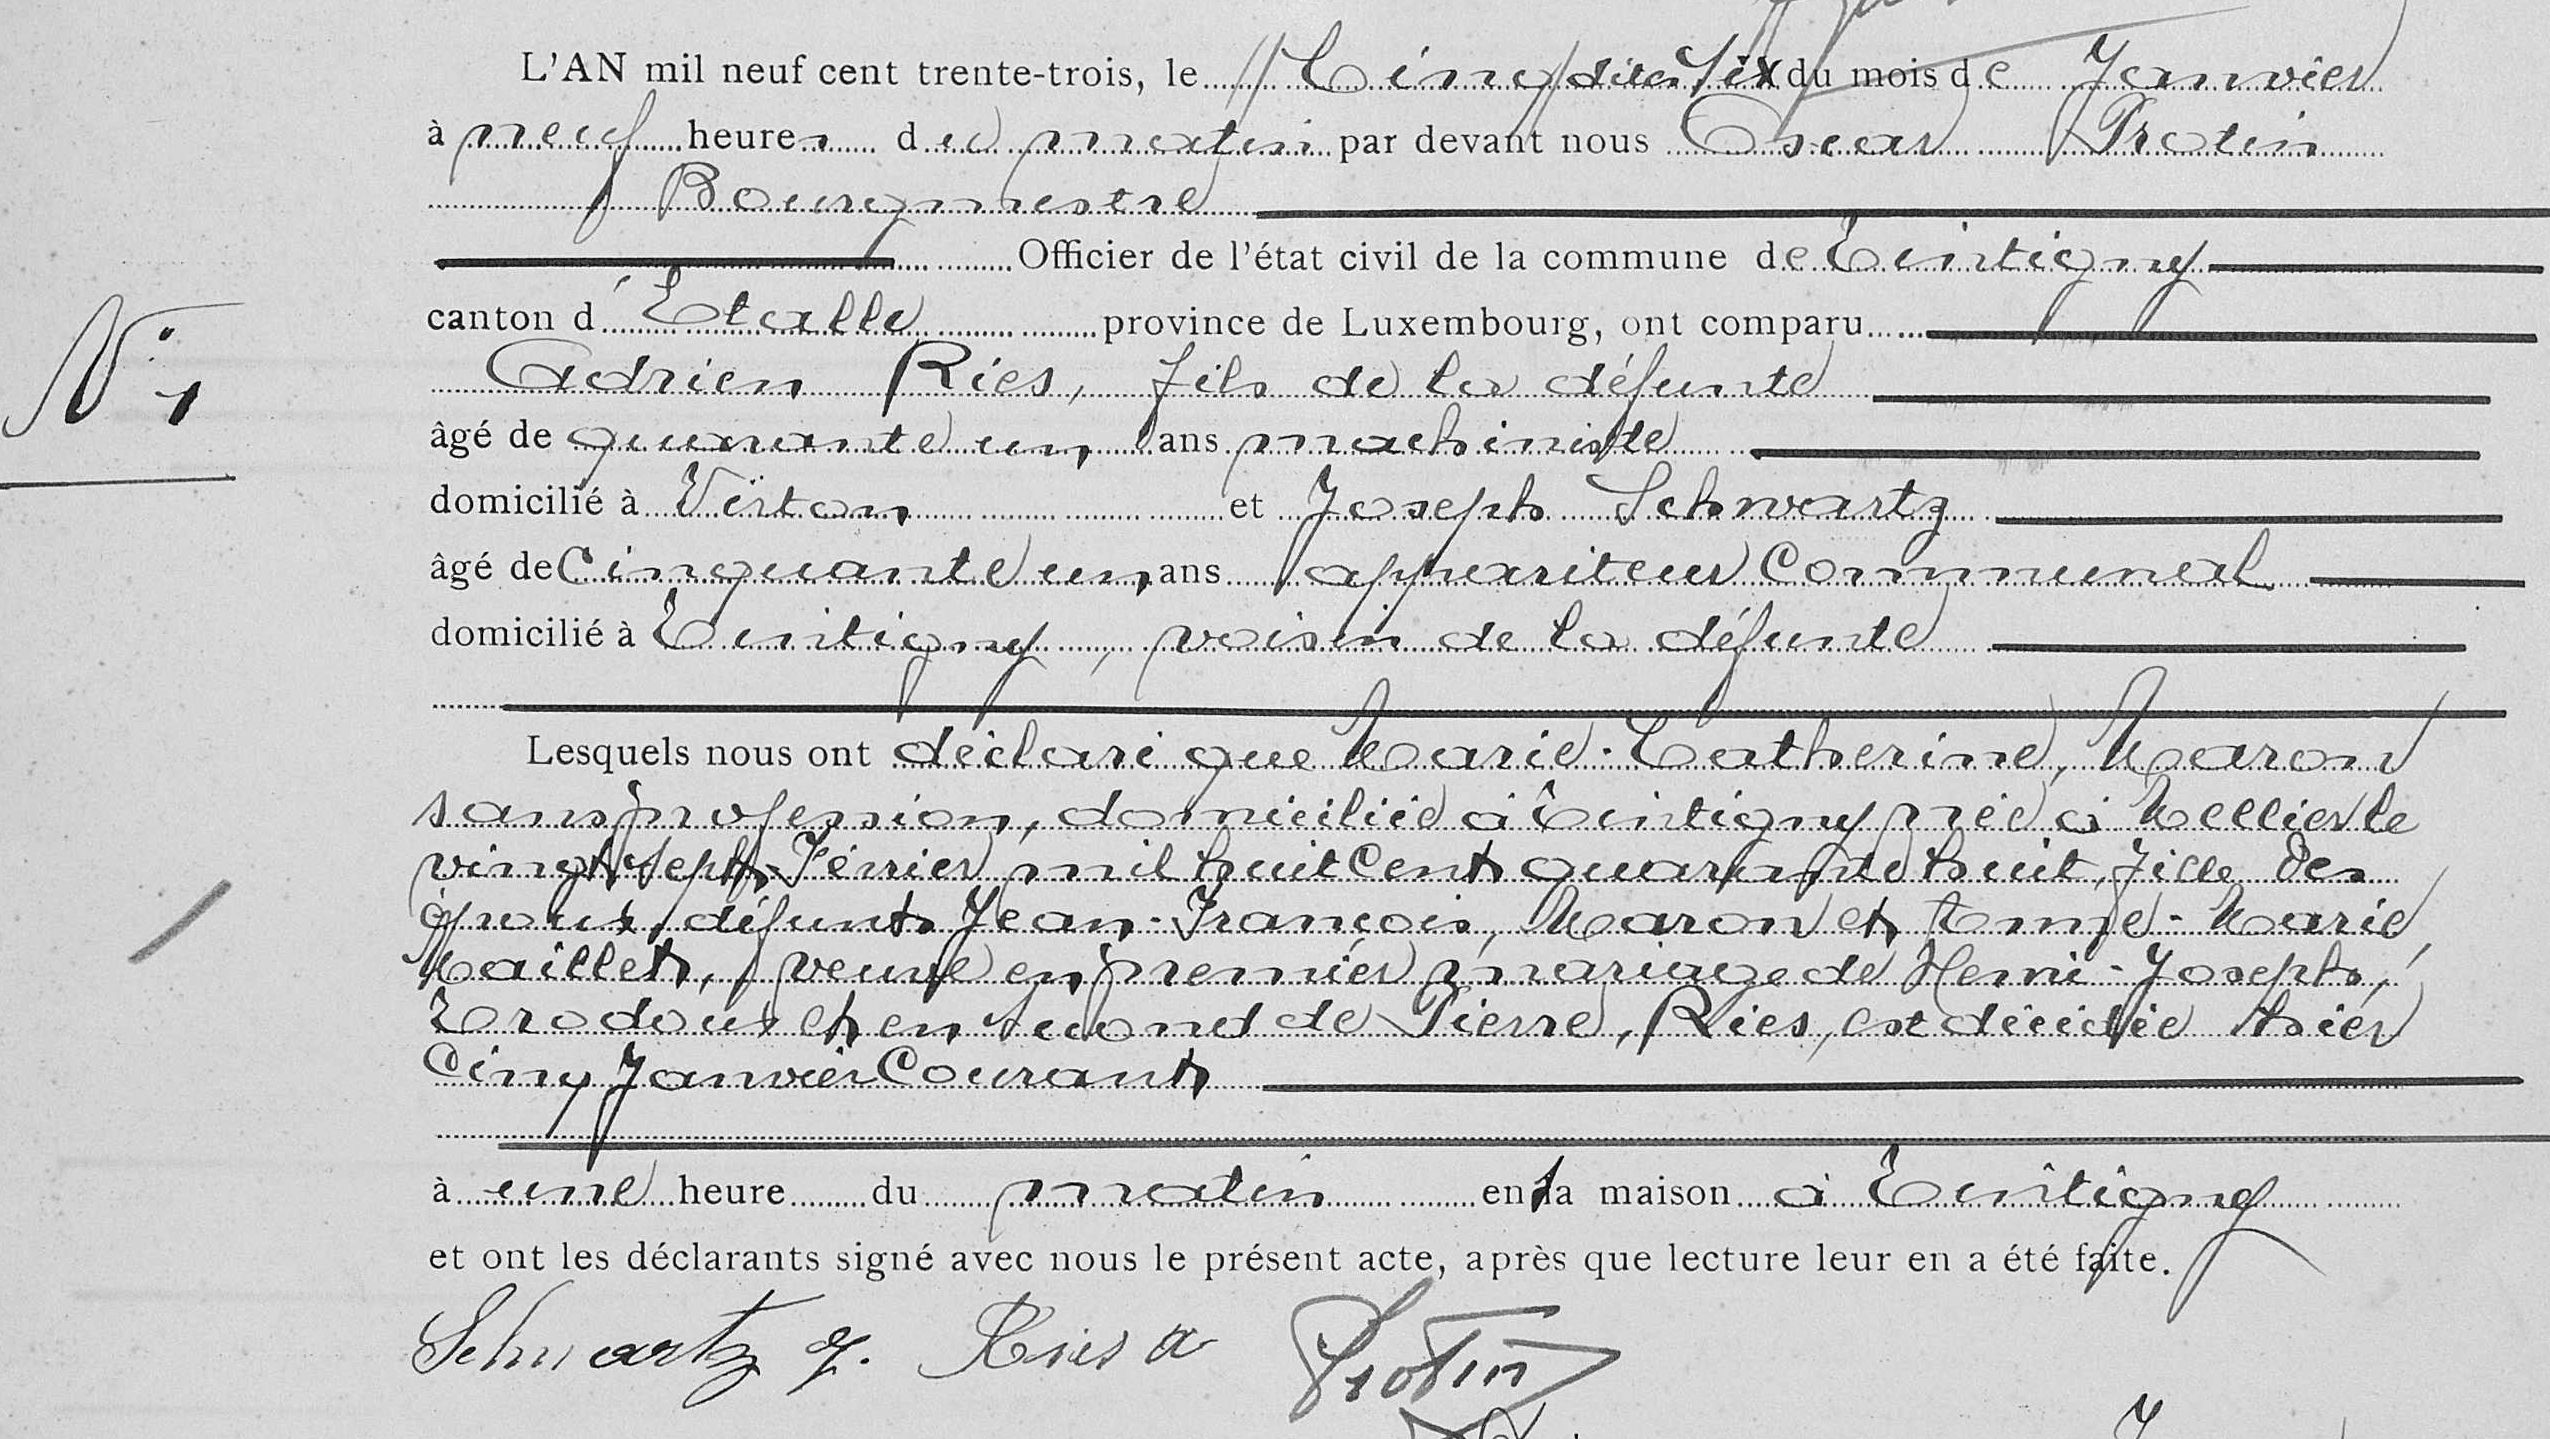 L'AN mil neuf cent trente-trois, le // Cinq // dites Six du mois de Janvier
à neuf heures du matin par devant nous Oscar Protin
Bourgmestre
Officier de l'état civil de la commune de Tintigny
canton d'Etalle province de Luxembourg, ont comparu
N° 1
Adrien Ries, fils de la défunte
âgé de quarante un ans machiniste
domicilié à Virton et Joseph Schwartz
âgé de Cinquante un ans appariteur Communal
domicilié à Tintigny, voisin de la défunte
Lesquels nous ont déclaré que Marie-Catherine, Maron
sans profession, domiciliée à Tintigny née à Mellier le
vingt sept Février mil huit Cent quarante huit, fille des
époux défunts Jean-François, Maron et Anne-Marie
Maillet, veuve en premier mariage de Henri-Joseph,
et en second de Pierre, Ries, est décédée hier
Cinq Janvier Courant
à une heure du matin en sa maison à Tintigny
et ont les déclarants signé avec nous le présent acte, après que lecture leur en a été faite.
Schwartz J. Ries A Protin